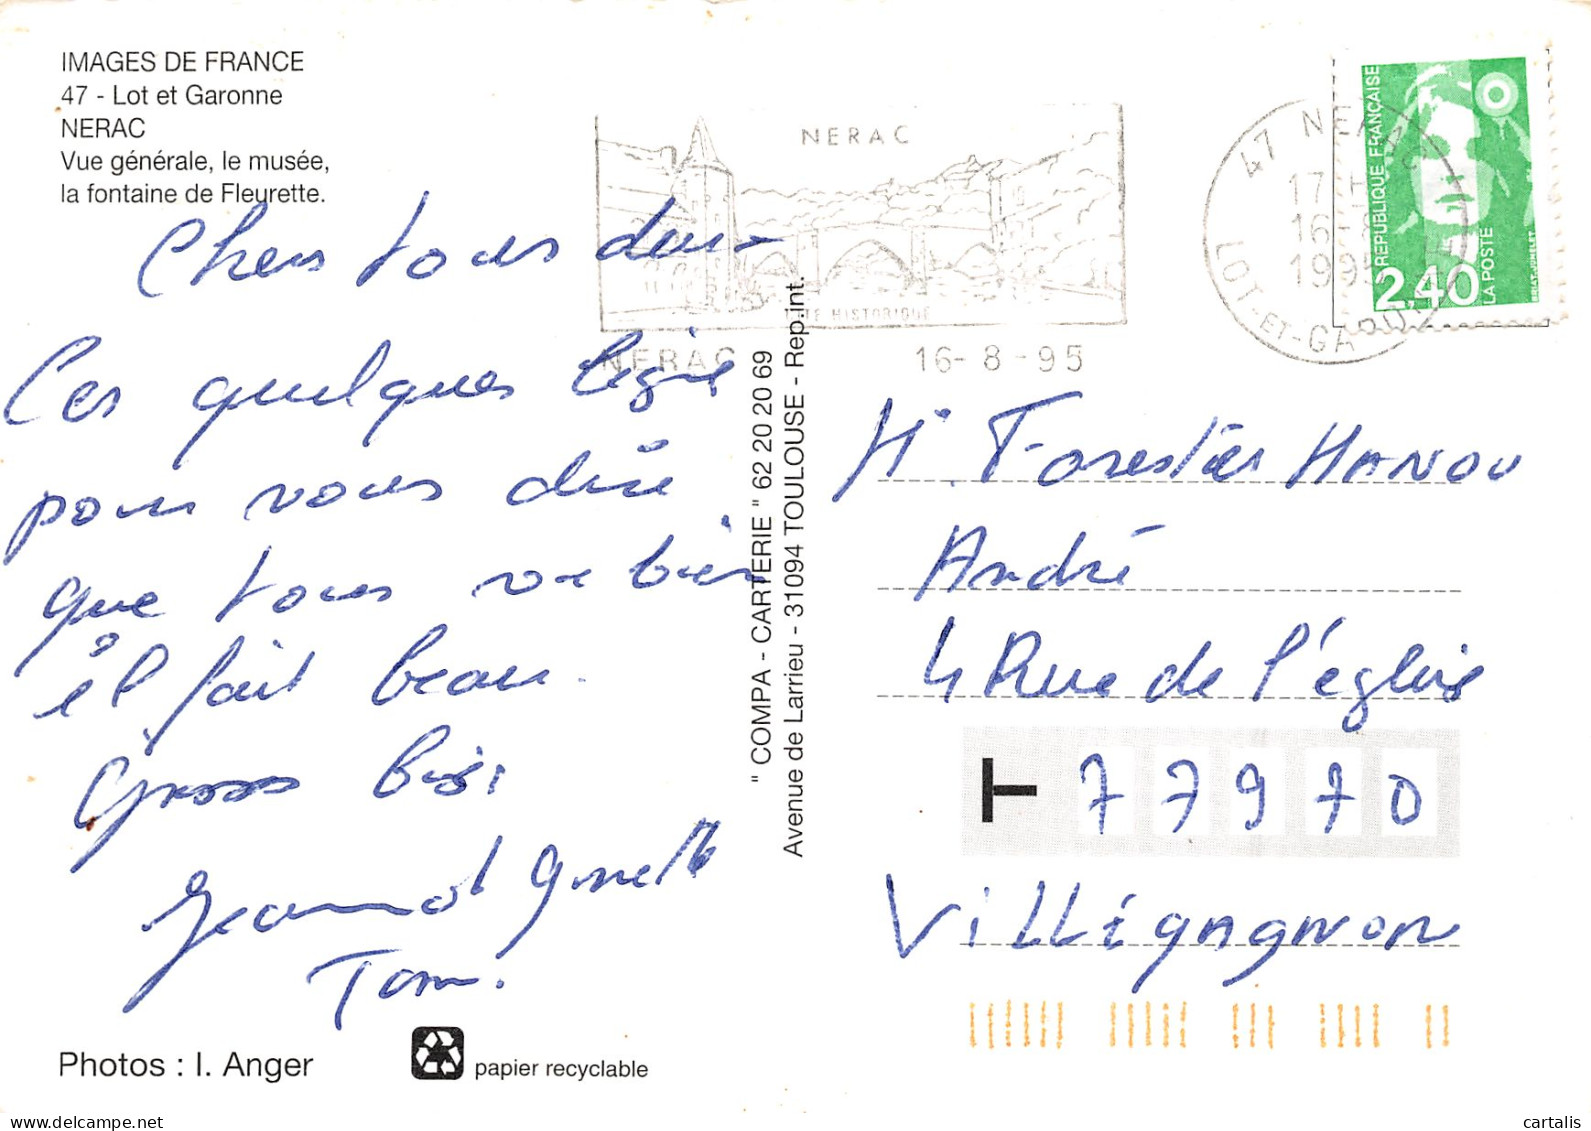 IMAGES DE FRANCE
47 - Lot et Garonne
NERAC
Vue générale, le musée,
la fontaine de Fleurette.
Chers tous deux
Ces quelques ligne
pour vous dire
que tous va bien
il fait beau.
Gross bisi
Jeannot Ginette
Tom.
Photos : I. Anger
papier recyclable
" COMPA - CARTERIE " 62 20 20 69
Avenue de Larrieu - 31094 TOULOUSE - Rep.int.
NERAC
CITE HISTORIQUE
NERAC 16-8-95
47 NERAC
17H
16-8
1995
LOT-ET-GARONNE
REPUBLIQUE FRANÇAISE
2,40
LA POSTE
BRIAT-JUMELET
Mr. Forestier MANOU
André
4 Rue de l'églis
T 77970
Villégagnon
cartalis
delcampe.net